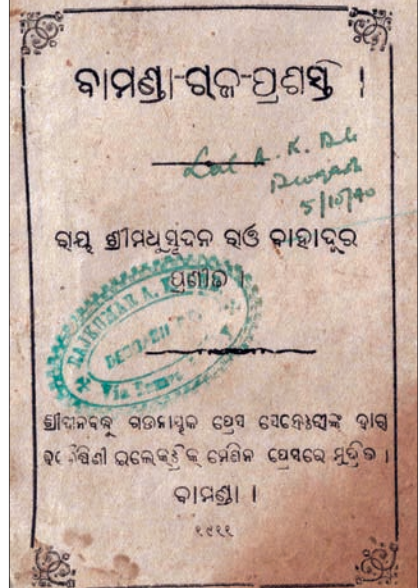 ବାମଣ୍ଡା-ରାଜ-ପ୍ରଶସ୍ତି ।
Lal A. K. Deb
Deogarh
5/10/40
ରାୟ ଶ୍ରୀମଧୁସୂଦନ ରାଓ ବାହାଦୂର
ପ୍ରଣୀତ ।
RAJKUMAR A. K.
DEOGARH
Via
ଶ୍ରୀଦୀନବନ୍ଧୁ ଗଡନାୟକ ପ୍ରେସ ସେକ୍ରେଟେରୀଙ୍କ ଦ୍ୱାରା
ଇଲେକ୍ଟ୍ରିକ୍ ମେଶିନ ପ୍ରେସରେ ମୁଦ୍ରିତ ।
ବାମଣ୍ଡା ।
୧୯୧୧